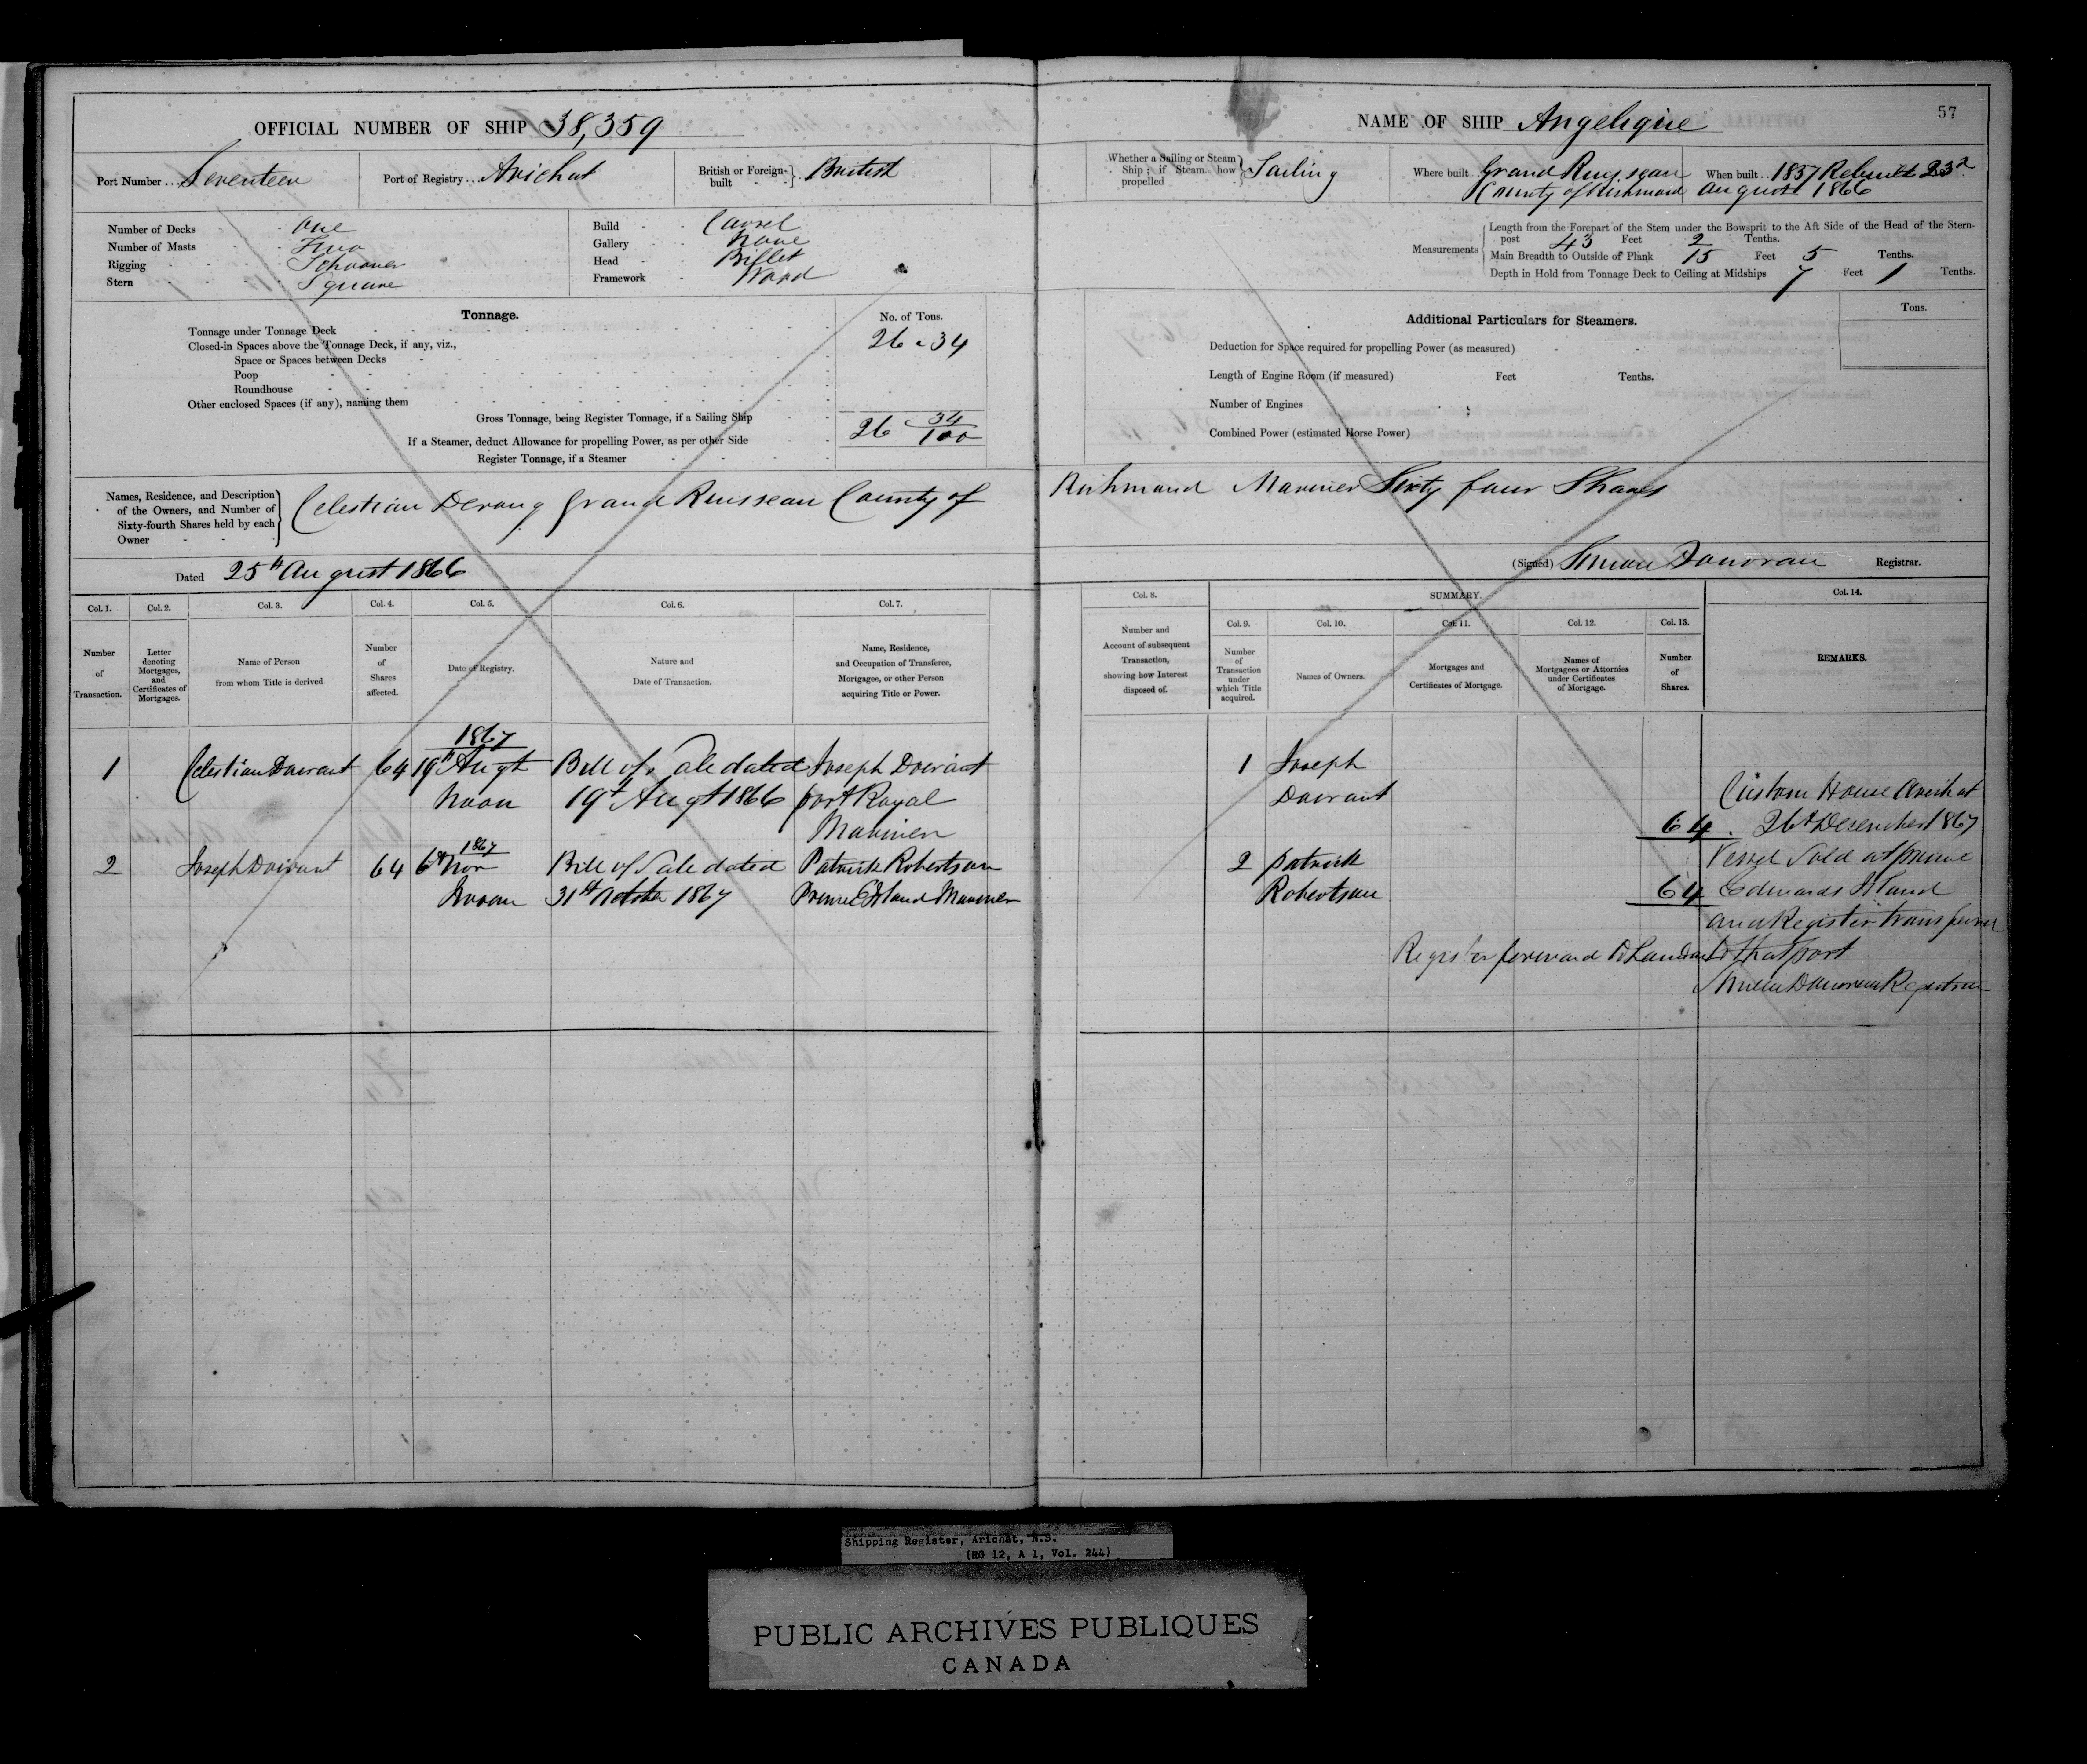 OFFICIAL NUMBER OF SHIP 38,359
Port Number Seventeen
Port of Registry Arichat
British or Foreign-built British
Number of Decks One
Number of Masts Two
Rigging Schooner
Stern Square
Build Carvel
Gallery None
Head Billet
Framework Wood
Tonnage.
No. of Tons.
Tonnage under Tonnage Deck
26 . 34
Closed-in Spaces above the Tonnage Deck, if any, viz.,
Space or Spaces between Decks
Poop
Roundhouse
Other enclosed Spaces (if any), naming them
Gross Tonnage, being Register Tonnage, if a Sailing Ship
26 34/100
If a Steamer, deduct Allowance for propelling Power, as per other Side
Register Tonnage, if a Steamer
Names, Residence, and Description
of the Owners, and Number of
Sixty-fourth Shares held by each
Owner
Celestian Grand Ruisseau County of
Dated 25th August 1866
Col. 1. Col. 2. Col. 3. Col. 4. Col. 5. Col. 6. Col. 7.
Number of Transaction.
Letter denoting Mortgages, and Certificates of Mortgages.
Name of Person from whom Title is derived
Number of Shares affected.
Date of Registry.
Nature and Date of Transaction.
Name, Residence, and Occupation of Transferee, Mortgagee, or other Person acquiring Title or Power.
1867
1 Celestian Doirant 64 19th Augt Bill of Sale dated Joseph Doirant
Noon 19th Augt 1866 port Royal
Mariner
1867
2 Joseph Doirant 64 6th Nov Bill of Sale dated Patrick Robertson
Noon 31st October 1867 Prince E Island Mariner
57
NAME OF SHIP Angelique
Whether a Sailing or Steam
Ship; if Steam how
propelled
Sailing
Where built Grand Ruisseau
County of Richmond
When built 1857 Rebuilt 23d
August 1866
Measurements
Length from the Forepart of the Stem under the Bowsprit to the Aft Side of the Head of the Stern-
post 43 Feet 2 Tenths.
Main Breadth to Outside of Plank 15 Feet 5 Tenths.
Depth in Hold from Tonnage Deck to Ceiling at Midships 7 Feet 1 Tenths.
Additional Particulars for Steamers.
Tons.
Deduction for Space required for propelling Power (as measured)
Length of Engine Room (if measured) Feet Tenths.
Number of Engines
Combined Power (estimated Horse Power)
Richmond Mariner Sixty four Shares
(Signed) Simon Donovan Registrar.
Col. 8.
SUMMARY.
Col. 14.
Col. 9. Col. 10. Col. 11. Col. 12. Col. 13.
Number and Account of subsequent Transaction, showing how Interest disposed of.
Number of Transaction under which Title acquired.
Names of Owners.
Mortgages and Certificates of Mortgage.
Names of Mortgagees or Attornies under Certificates of Mortgage.
Number of Shares.
REMARKS.
1 Joseph
Doirant
64
2 Patrick
Robertson
64
Custom House Arichat
26th December 1867
Vessel Sold at prince
Edwards Island
and Register transferred
to that port
Register forward to London
Simon Donovan Registrar
Shipping Register, Arichat, N.S.
(RG 12, A 1, Vol. 244)
PUBLIC ARCHIVES PUBLIQUES
CANADA